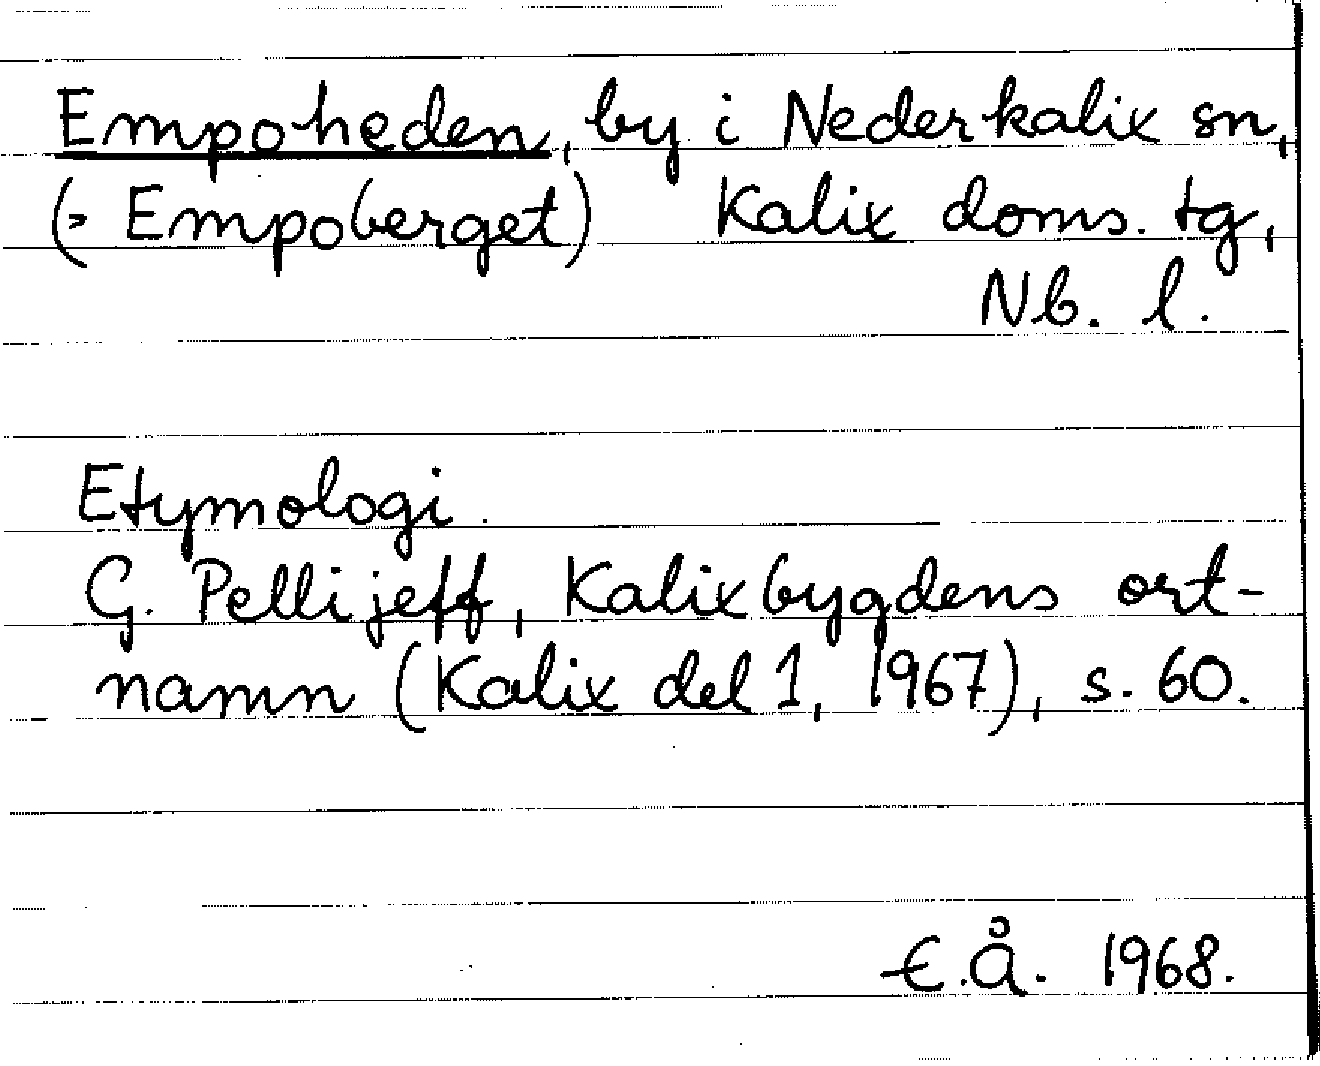 Empoheden, by i Nederkalix sn,
(= Empoberget) Kalix doms. tg,
Nb. l.
Etymologi.
G. Pellijeff, Kalixbygdens ort-
namn (Kalix del 1, 1967), s. 60.
E.Å. 1968.